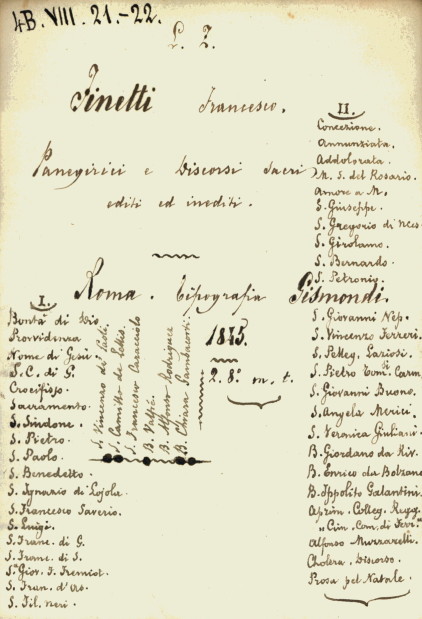 4B. VIII. 21.-22.
P. Z.
Finetti Francesco.
Panegirici e Discorsi Sacri
editi ed inediti.
Roma. Tipografia Gismondi.
1845.
2. 8.° m. t.
I.
Bontà di Dio
Provvidenza
Nome di Gesù
S. C. di G.
Crocifisso
Sacramento.
S. Sindone.
S. Pietro.
S. Paolo
S. Benedetto.
S. Ignazio di Lojola.
S. Francesco Saverio.
S. Luigi.
S. Franc. di G.
S. Franc. di S.
S.ª Giov. F. Fremiot.
S. Fran. d'As.
S. Fil. Neri.
S. Vincenzo di Paoli.
S. Camillo de Lellis.
S. Francesco Caracciolo
B. Valfrè.
B. Alfonso Rodriguez
B. Chiara Gambacorti.
II.
Concezione.
Annunziata.
Addolorata.
M. S. del Rosario.
Amore a M.
S. Giuseppe.
S. Gregorio di Nces.
S. Girolamo.
S. Bernardo.
S. Petronio.
S. Giovanni Nep.
S. Vincenzo Ferreri.
S. Pelleg. Laziosi.
S. Pietro Tom. Carm.
S. Giovanni Buono.
S. Angela Merici.
S. Veronica Giuliani
B. Giordano da Riv.
B. Enrico da Bolzano
B. Ippolito Galantini.
Aprim. Colleg. Regg.
" Cim. Com. di Ferr."
Alfonso Muzzarelli.
Cholera. Discorso.
Prosa pel Natale.